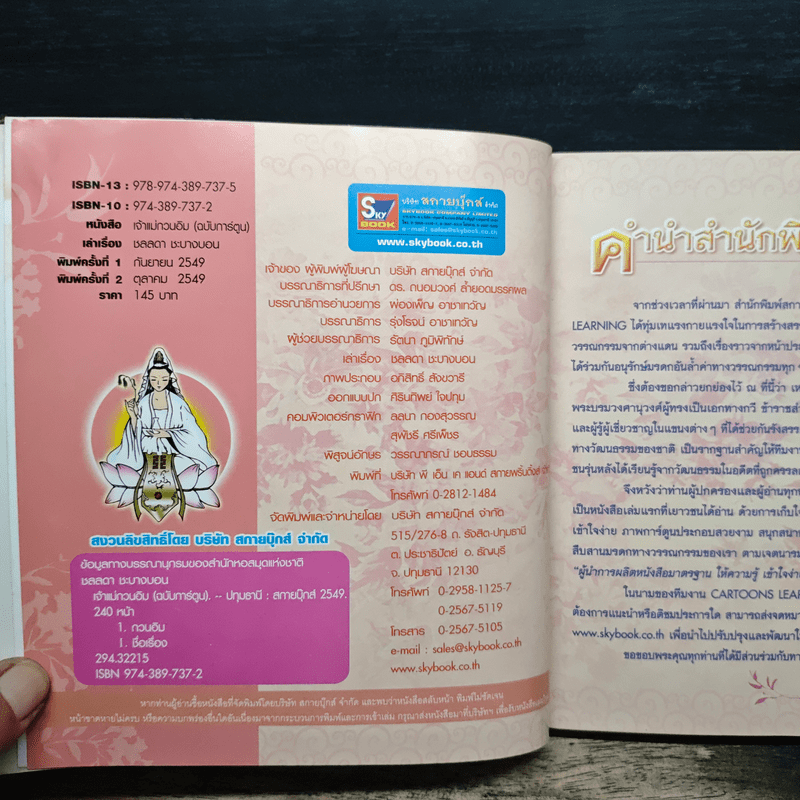 ISBN-13 : 978-974-389-737-5
ISBN-10 : 974-389-737-2
หนังสือ เจ้าแม่กวนอิม (ฉบับการ์ตูน)
เล่าเรื่อง ชลลดา ชะบางบอน
พิมพ์ครั้งที่ 1 กันยายน 2549
พิมพ์ครั้งที่ 2 ตุลาคม 2549
ราคา 145 บาท
สงวนลิขสิทธิ์โดย บริษัท สกายบุ๊กส์ จำกัด
ข้อมูลทางบรรณานุกรมของสำนักหอสมุดแห่งชาติ
ชลลดา ชะบางบอน
เจ้าแม่กวนอิม (ฉบับการ์ตูน). -- ปทุมธานี : สกายบุ๊กส์ 2549.
240 หน้า
1. กวนอิม
I. ชื่อเรื่อง
294.32215
ISBN 974-389-737-2
SKY BOOK
บริษัท สกายบุ๊กส์ จำกัด
SKYBOOK COMPANY LIMITED
e-mail : sales@skybook.co.th
www.skybook.co.th
เจ้าของ ผู้พิมพ์ผู้โฆษณา บริษัท สกายบุ๊กส์ จำกัด
บรรณาธิการที่ปรึกษา ดร. ถนอมวงศ์ ล้ำยอดมรรคผล
บรรณาธิการอำนวยการ ผ่องเพ็ญ อาชาเทวัญ
บรรณาธิการ รุ่งโรจน์ อาชาเทวัญ
ผู้ช่วยบรรณาธิการ รัตนา ภูมิพิทักษ์
เล่าเรื่อง ชลลดา ชะบางบอน
ภาพประกอบ อภิสิทธิ์ สังขวารี
ออกแบบปก ศิรินทิพย์ ใจปทุม
คอมพิวเตอร์กราฟิก ลลนา ทองสุวรรณ
สุพัชรี ศรีเพ็ชร
พิสูจน์อักษร วรรณาภรณ์ ชอบธรรม
พิมพ์ที่ บริษัท พี เอ็น เค แอนด์ สกายพริ้นติ้งส์
โทรศัพท์ 0-2812-1484
จัดพิมพ์และจำหน่ายโดย บริษัท สกายบุ๊กส์ จำกัด
515/276-8 ถ. รังสิต-ปทุมธานี
ต. ประชาธิปัตย์ อ. ธัญบุรี
จ. ปทุมธานี 12130
โทรศัพท์ 0-2958-1125-7
0-2567-5119
โทรสาร 0-2567-5105
e-mail : sales@skybook.co.th
www.skybook.co.th
หากท่านผู้อ่านซื้อหนังสือที่จัดพิมพ์โดยบริษัท สกายบุ๊กส์ จำกัด และพบว่าหนังสือสลับหน้า พิมพ์ไม่ชัดเจน
หน้าขาดหายไม่ครบ หรือความบกพร่องอื่นใดอันเนื่องมาจากกระบวนการพิมพ์และการเข้าเล่ม กรุณาส่งหนังสือมาที่บริษัทฯ เพื่อรับหนังสือ
คำนำสำนักพิ
จากช่วงเวลาที่ผ่านมา สำนักพิมพ์สกา
LEARNING ได้ทุ่มเทแรงกายแรงใจในการสร้างสร
วรรณกรรมจากต่างแดน รวมถึงเรื่องราวจากหน้าประ
ได้ร่วมกันอนุรักษ์มรดกอันล้ำค่าทางวรรณกรรมทุก
ซึ่งต้องขอกล่าวยกย่องไว้ ณ ที่นี้ว่า เห
พระบรมวงศานุวงศ์ผู้ทรงเป็นเอกทางกวี ข้าราชสำ
และผู้รู้ผู้เชี่ยวชาญในแขนงต่าง ๆ ที่ได้ช่วยกันรังสรร
ทางวัฒนธรรมของชาติ เป็นรากฐานสำคัญให้ทีมงา
ชนรุ่นหลังได้เรียนรู้จากวัฒนธรรมในอดีตที่ถูกครรลอ
จึงหวังว่าท่านผู้ปกครองและผู้อ่านทุก
เป็นหนังสือเล่มแรกที่เยาวชนได้อ่าน ด้วยการเก็บใจ
เข้าใจง่าย ภาพการ์ตูนประกอบสวยงาม สนุกสนา
สืบสานมรดกทางวรรณกรรมของเรา ตามเจตนารม
"ผู้นำการผลิตหนังสือมาตรฐาน ให้ความรู้ เข้าใจง่าย
ในนามของทีมงาน CARTOONS LEAR
ต้องการแนะนำหรือติชมประการใด สามารถส่งจดหมา
www.skybook.co.th เพื่อนำไปปรับปรุงและพัฒนาใ
ขอขอบพระคุณทุกท่านที่ได้มีส่วนร่วมกับทา